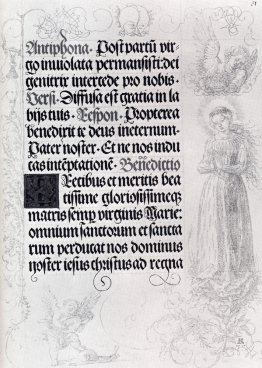 51
Antiphona. Post partū vir-
go inviolata permansisti: dei
genitrix intercede pro nobis.
Versi. Diffusa est gratia in la
bijs tuis. Respon. Propterea
benedixit te deus ineternum.
Pater noster. Et ne nos indu
cas intēptationē. Benedictio
Precibus et meritis bea
tissime gloriosissimeq;
matris semp virginis Marie:
omnium sanctorum et sancta
rum perducat nos dominus
noster iesus christus ad regna